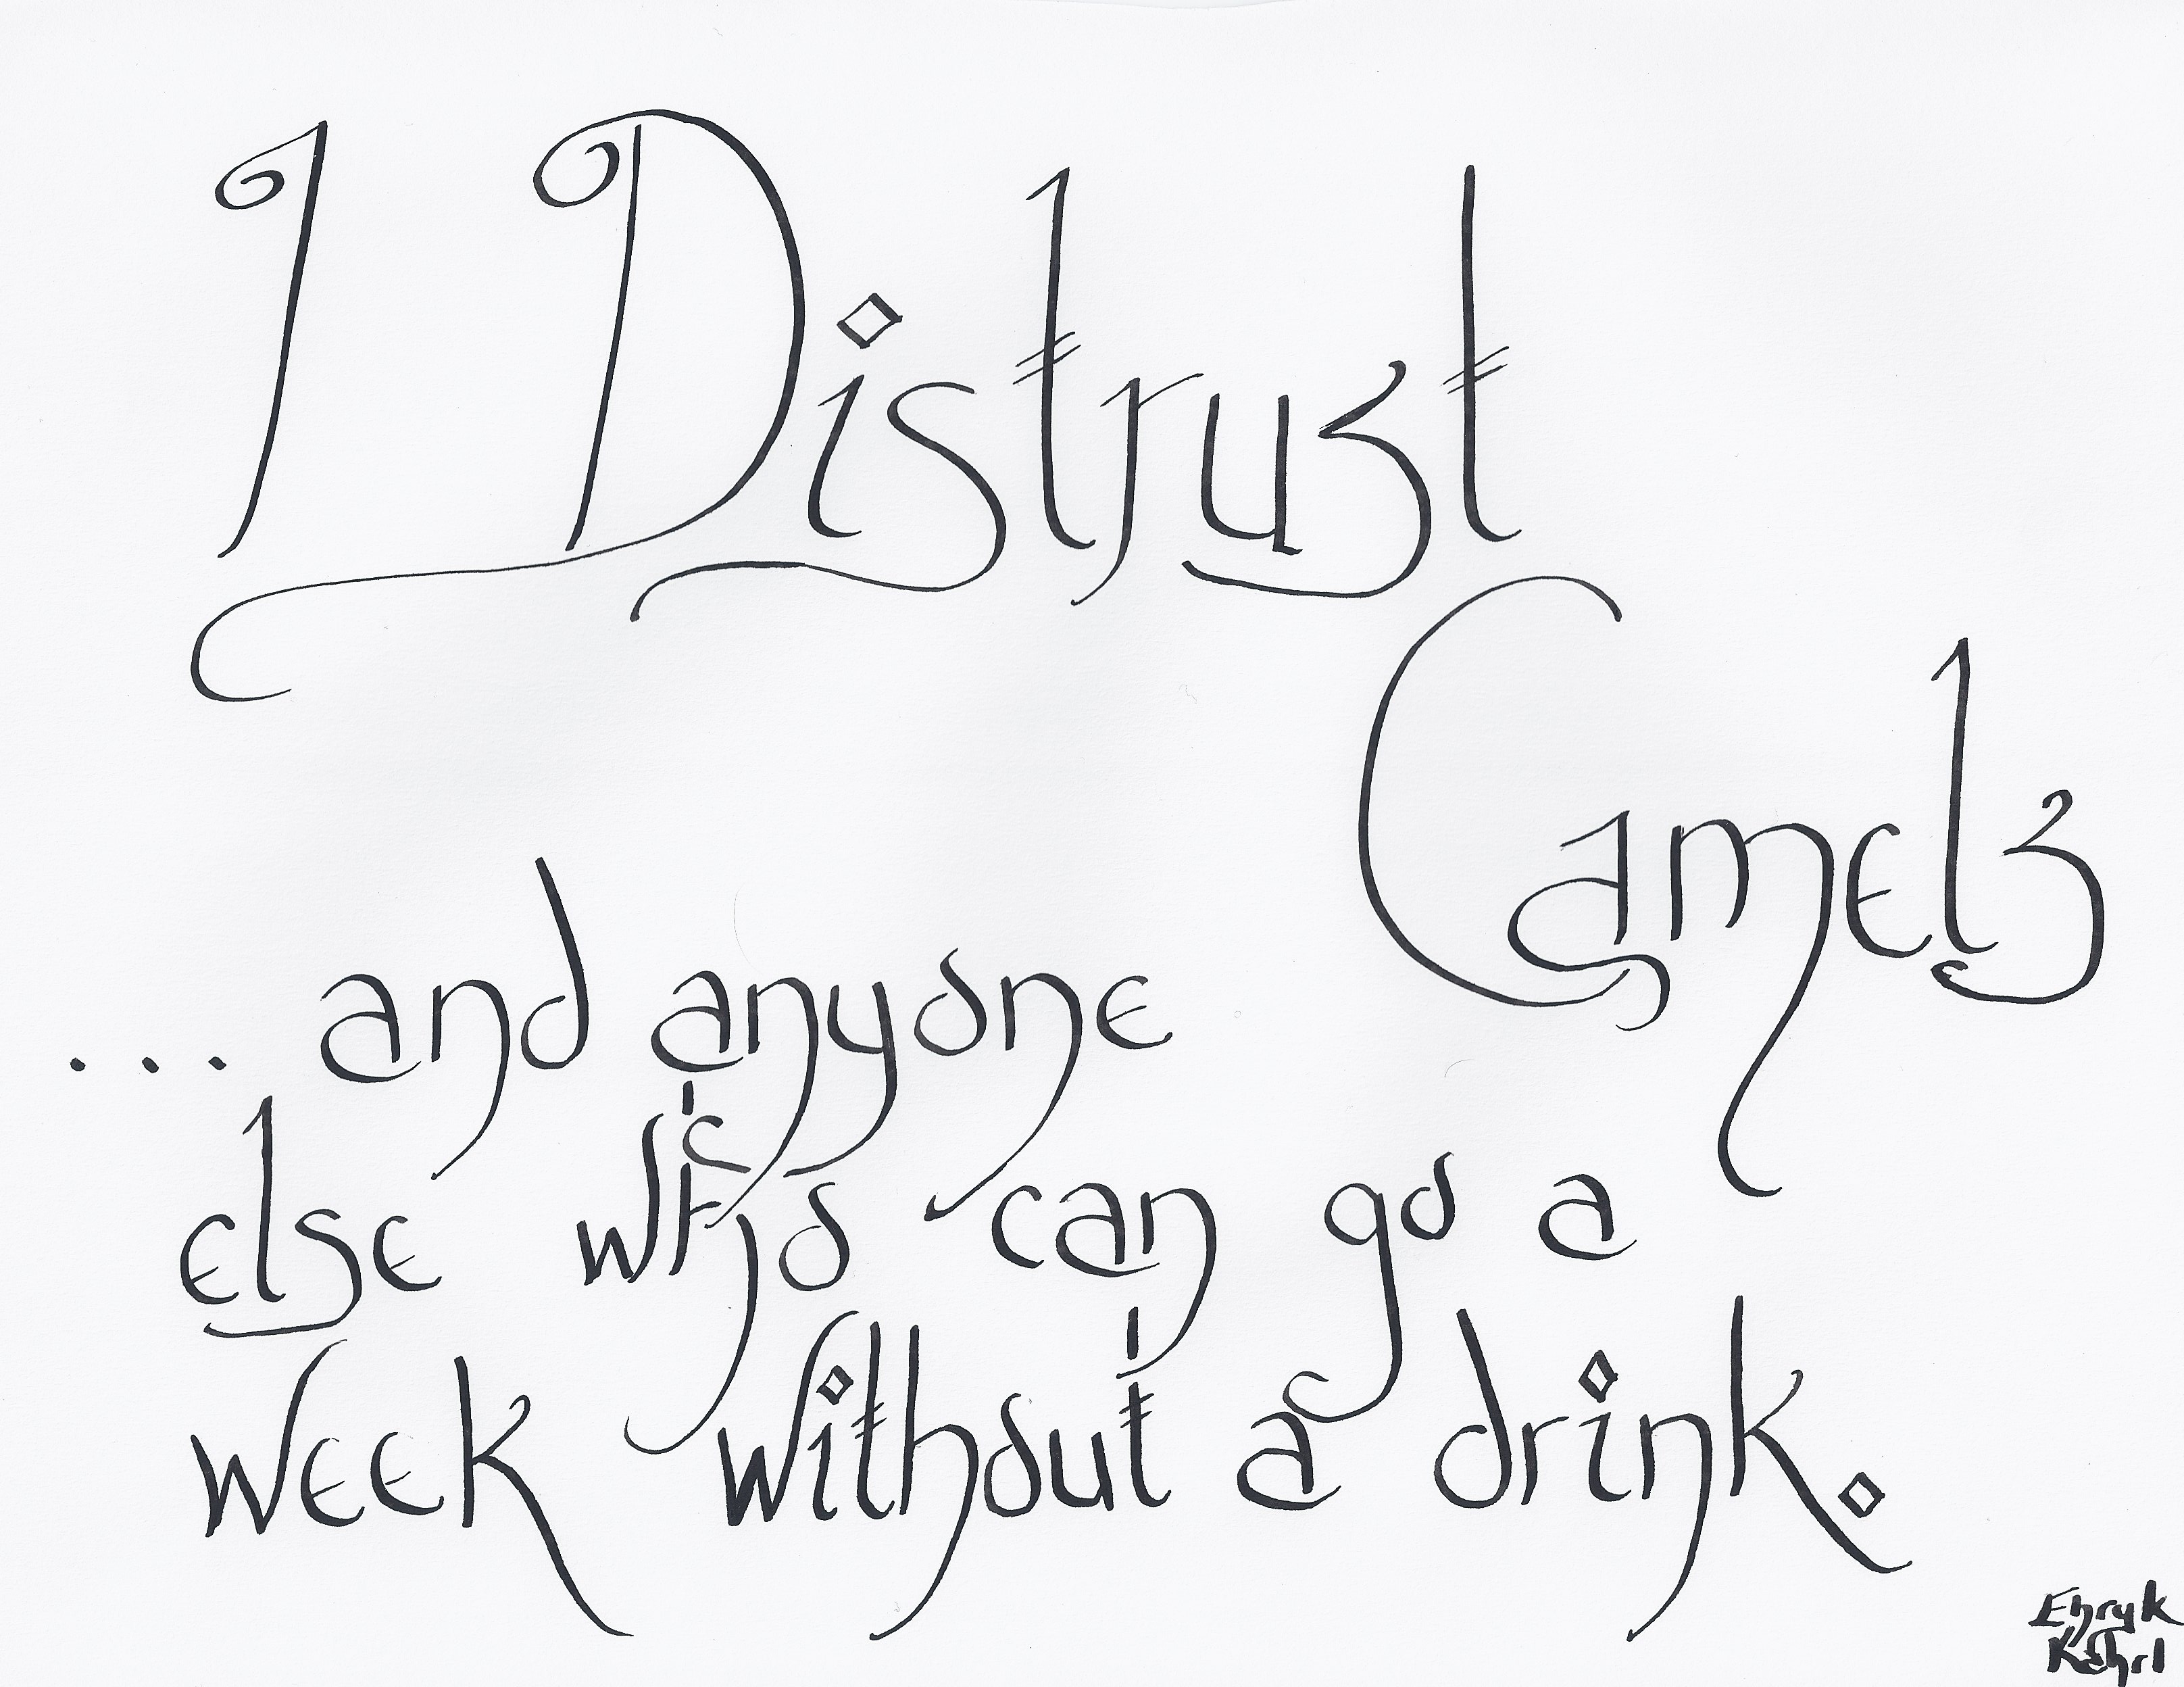 I Distrust
Camels
... and anyone
else who can go a
week without a drink.
Ehryk
Kehrl